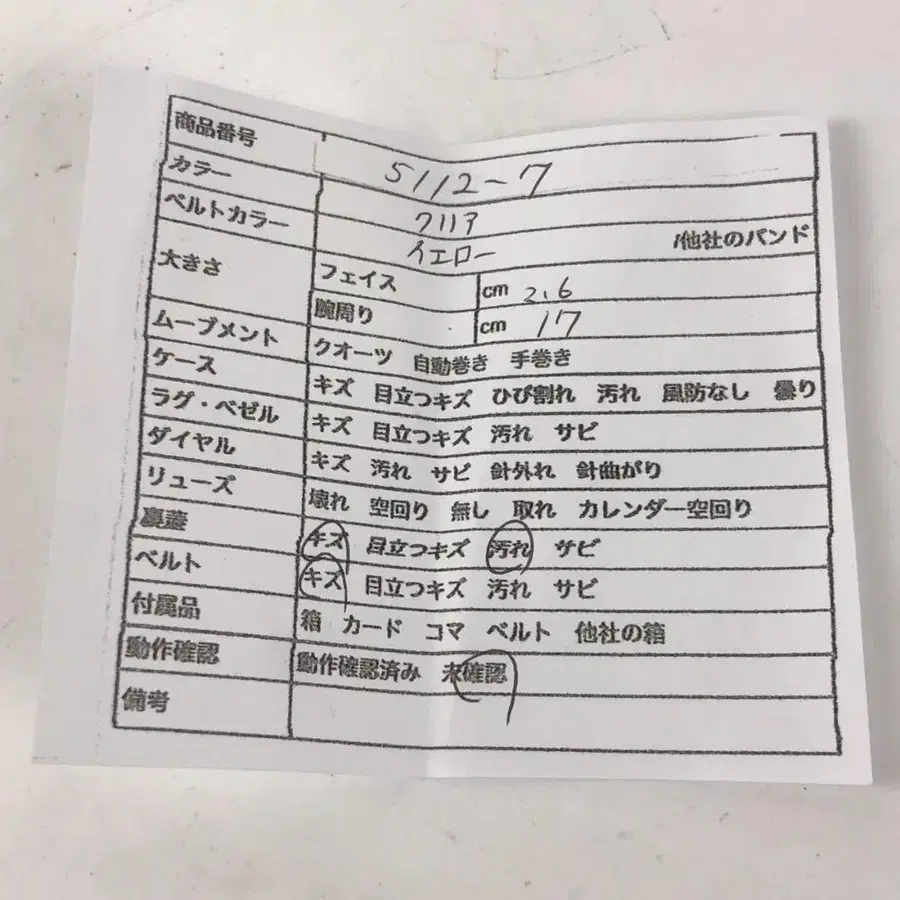 商品番号 5112-7
カラー クリア
ベルトカラー イエロー /他社のバンド
大きさ フェイス cm 2.6
腕周り cm 17
ムーブメント クオーツ 自動巻き 手巻き
ケース キズ 目立つキズ ひび割れ 汚れ 風防なし 曇り
ラグ・ベゼル キズ 目立つキズ 汚れ サビ
ダイヤル キズ 汚れ サビ 針外れ 針曲がり
リューズ 壊れ 空回り 無し 取れ カレンダー空回り
裏蓋 キズ 目立つキズ 汚れ サビ
ベルト キズ 目立つキズ 汚れ サビ
付属品 箱 カード コマ ベルト 他社の箱
動作確認 動作確認済み 未確認
備考